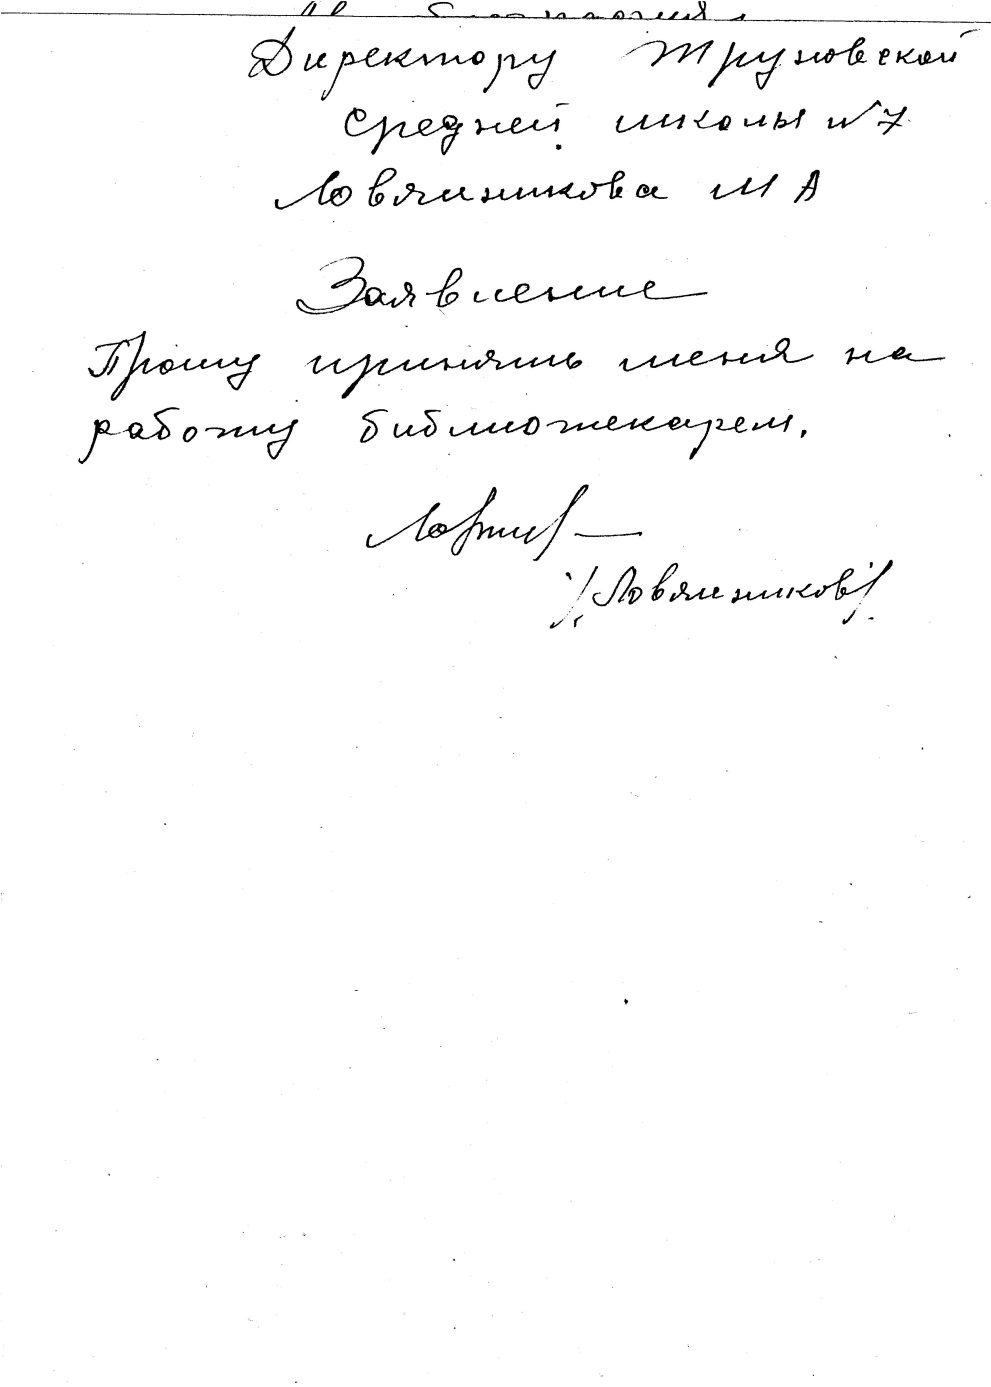 Директору Труновской
средней школы №7
Ловянникова М А
Заявление
Прошу принять меня на
работу библиотекарем.
/Ловянников/